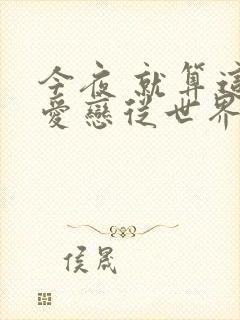 今夜 就算這
愛戀從世界
侯晟